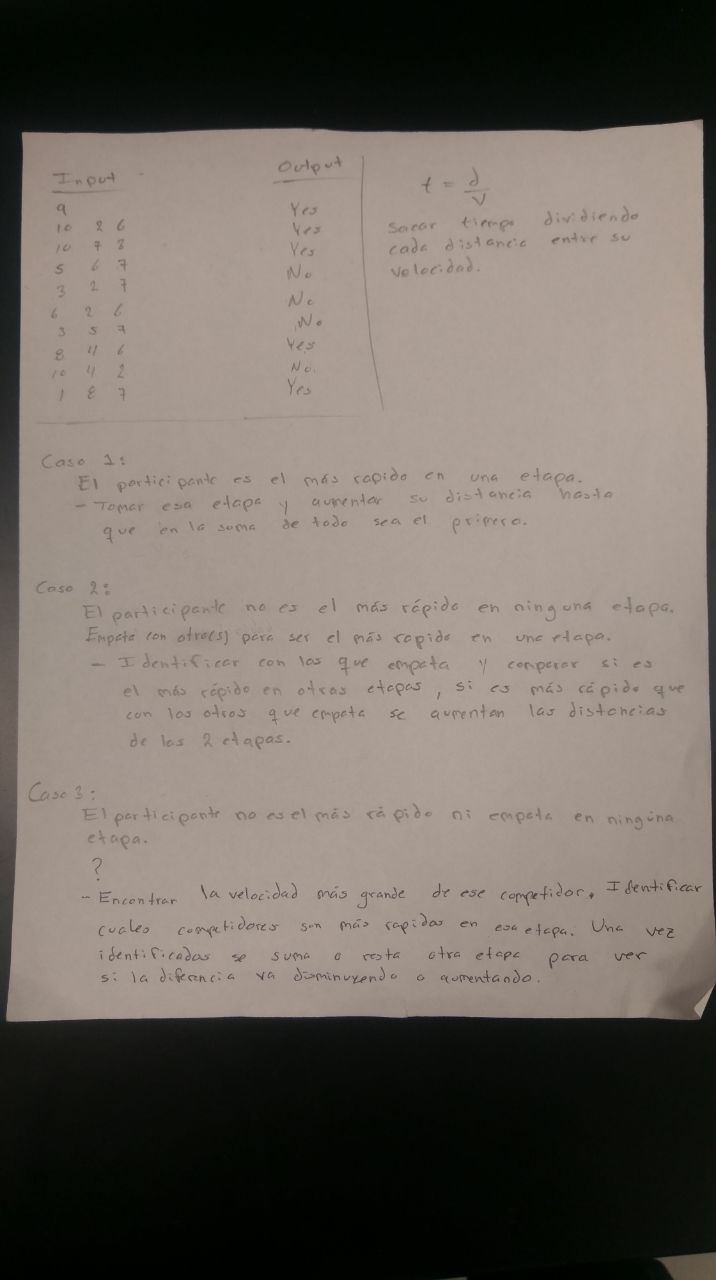 Input Output
9 Yes
10 2 6 Yes
10 7 3 Yes
5 6 7 No
3 2 7 No
6 2 6 No
3 5 7 Yes
8 4 6 No.
10 4 2 Yes
1 8 7
t = d
V
Sacar tiempo dividiendo
cada distancia entre su
velocidad.
Caso 1:
El participante es el más rapido en una etapa.
- Tomar esa etapa y aumentar su distancia hasta
que en la suma de todo sea el primero.
Caso 2:
El participante no es el más rápido en ninguna etapa.
Empata con otro(s) para ser el más rapido en una etapa.
- Identificar con los que empata y comparar si es
el más rápido en otras etapas, si es más rápido que
con los otros que empata se aumentan las distancias
de las 2 etapas.
Caso 3:
El participante no es el más rápido ni empata en ningúna
etapa.
?
- Encontrar la velocidad más grande de ese competidor. Identificar
cuales competidores son más rapidos en esa etapa. Una vez
identificados se suma o resta otra etapa para ver
si la diferencia va disminuyendo o aumentando.